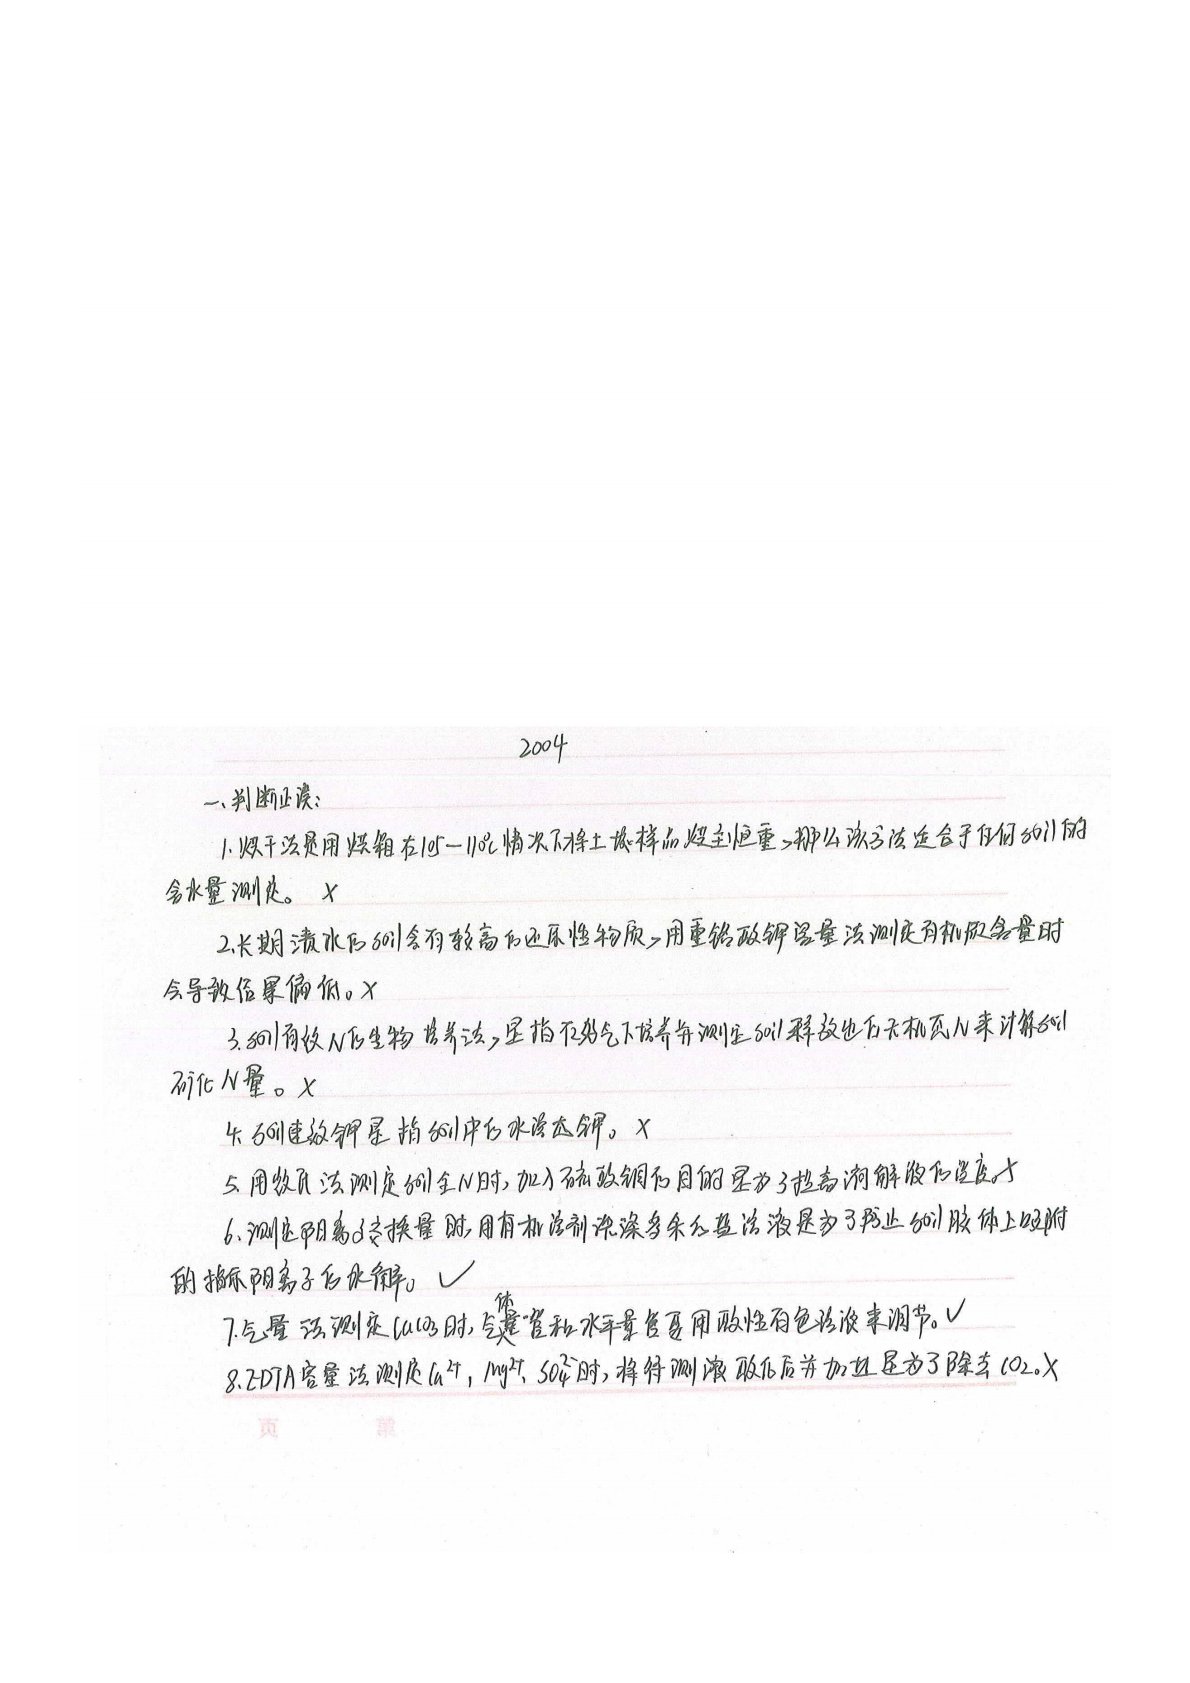 2004
一、判断正误:
1.烘干法是用烘箱在105—110℃情况下将土壤样品烘至恒重,那么该方法适合于任何soil的
含水量测定。 ×
2.长期渍水的soil含有较高的还原性物质,用重铬酸钾容量法测定有机质含量时
会导致结果偏低。×
3.soil有效N的生物培养法,是指在好气下培养并测定soil释放出的无机态N来计算soil
矿化N量。×
4.soil速效钾是指soil中的水溶态钾。×
5.用开氏法测定soil全N时,加入硫酸铜的目的是为了提高消解液的温度。×
6.测定阳离子交换量时,用有机溶剂洗涤多余的盐溶液是为了防止soil胶体上吸附
的指示阳离子的水解。✓
7.气量法测定CaCO3时,气体量管和水平量管要用酸性有色溶液来调节。✓
8.EDTA容量法测定Ca²⁺,Mg²⁺,SO₄²⁻时,将待测液酸化后并加热是为了除去CO2。×
第 页